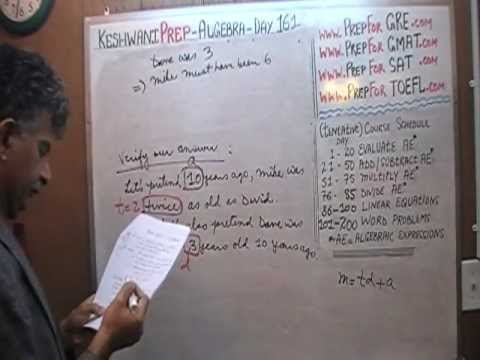 KESHWANI PREP - ALGEBRA - DAY 161
Dave was 3
⇒ Mike must have been 6
Verify our answer :
a
Let's pretend 10 years ago, Mike was
t=2 twice as old as David.
also pretend Dave was
3 years old 10 years ago
d
www.PREPFOR GRE.com
www.PREPFOR GMAT.com
www.PREPFOR SAT.com
www.PREPFOR TOEFL.com
(TENTATIVE) COURSE SCHEDULE
DAY
1 - 20 EVALUATE AE*
21 - 50 ADD/SUBTRACT AE*
51 - 75 MULTIPLY AE*
76 - 85 DIVIDE AE*
86-100 LINEAR EQUATIONS
101-200 WORD PROBLEMS
*AE = ALGEBRAIC EXPRESSIONS
m = td + a